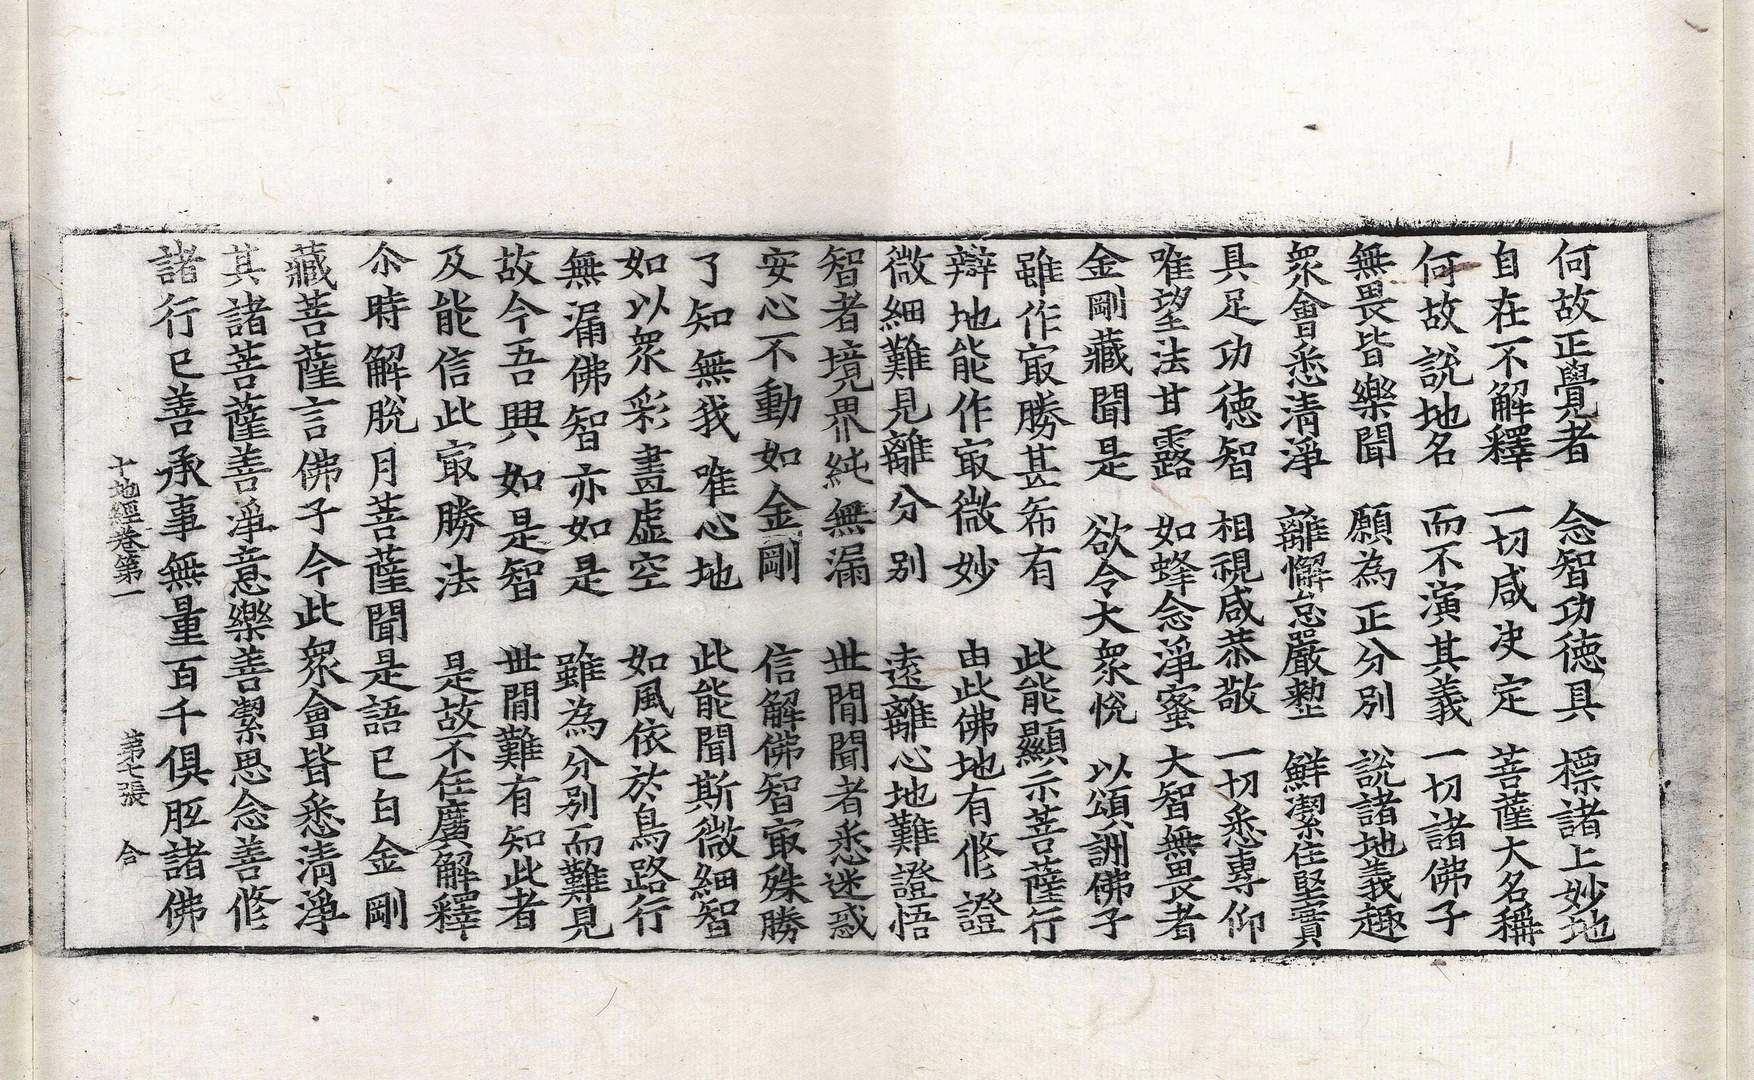 何故正覺者　念智功德具　標諸上妙地
自在不解釋　一切咸决定　菩薩大名稱
何故說地名　而不演其義　一切諸佛子
無畏皆樂聞　願為正分別　說諸地義趣
衆會悉清淨　離懈怠嚴整　鮮潔住堅實
具足功德智　相視咸恭敬　一切悉專仰
唯望法甘露　如蜂念淨蜜　大智無畏者
金剛藏聞是　欲令大衆悅　以頌詶佛子
雖作㝡勝甚希有　此能顯示菩薩行
辯地能作㝡微妙　由此佛地有修證
微細難見離分別　遠離心地難證悟
智者境界純無漏　世閒聞者悉迷惑
安心不動如金剛　信解佛智㝡殊勝
了知無我唯心地　此能聞斯微細智
如以衆彩畫虛空　如風依於鳥路行
無漏佛智亦如是　雖為分別而難見
故今吾興如是智　世間難有知此者
及能信此㝡勝法　是故不任廣解釋
尒時解脫月菩薩聞是語已白金剛
藏菩薩言佛子今此衆會皆悉清淨
其諸菩薩善淨意樂善潔思念善修
諸行已善承事無量百千俱胝諸佛
十地經卷第一　第七張　合